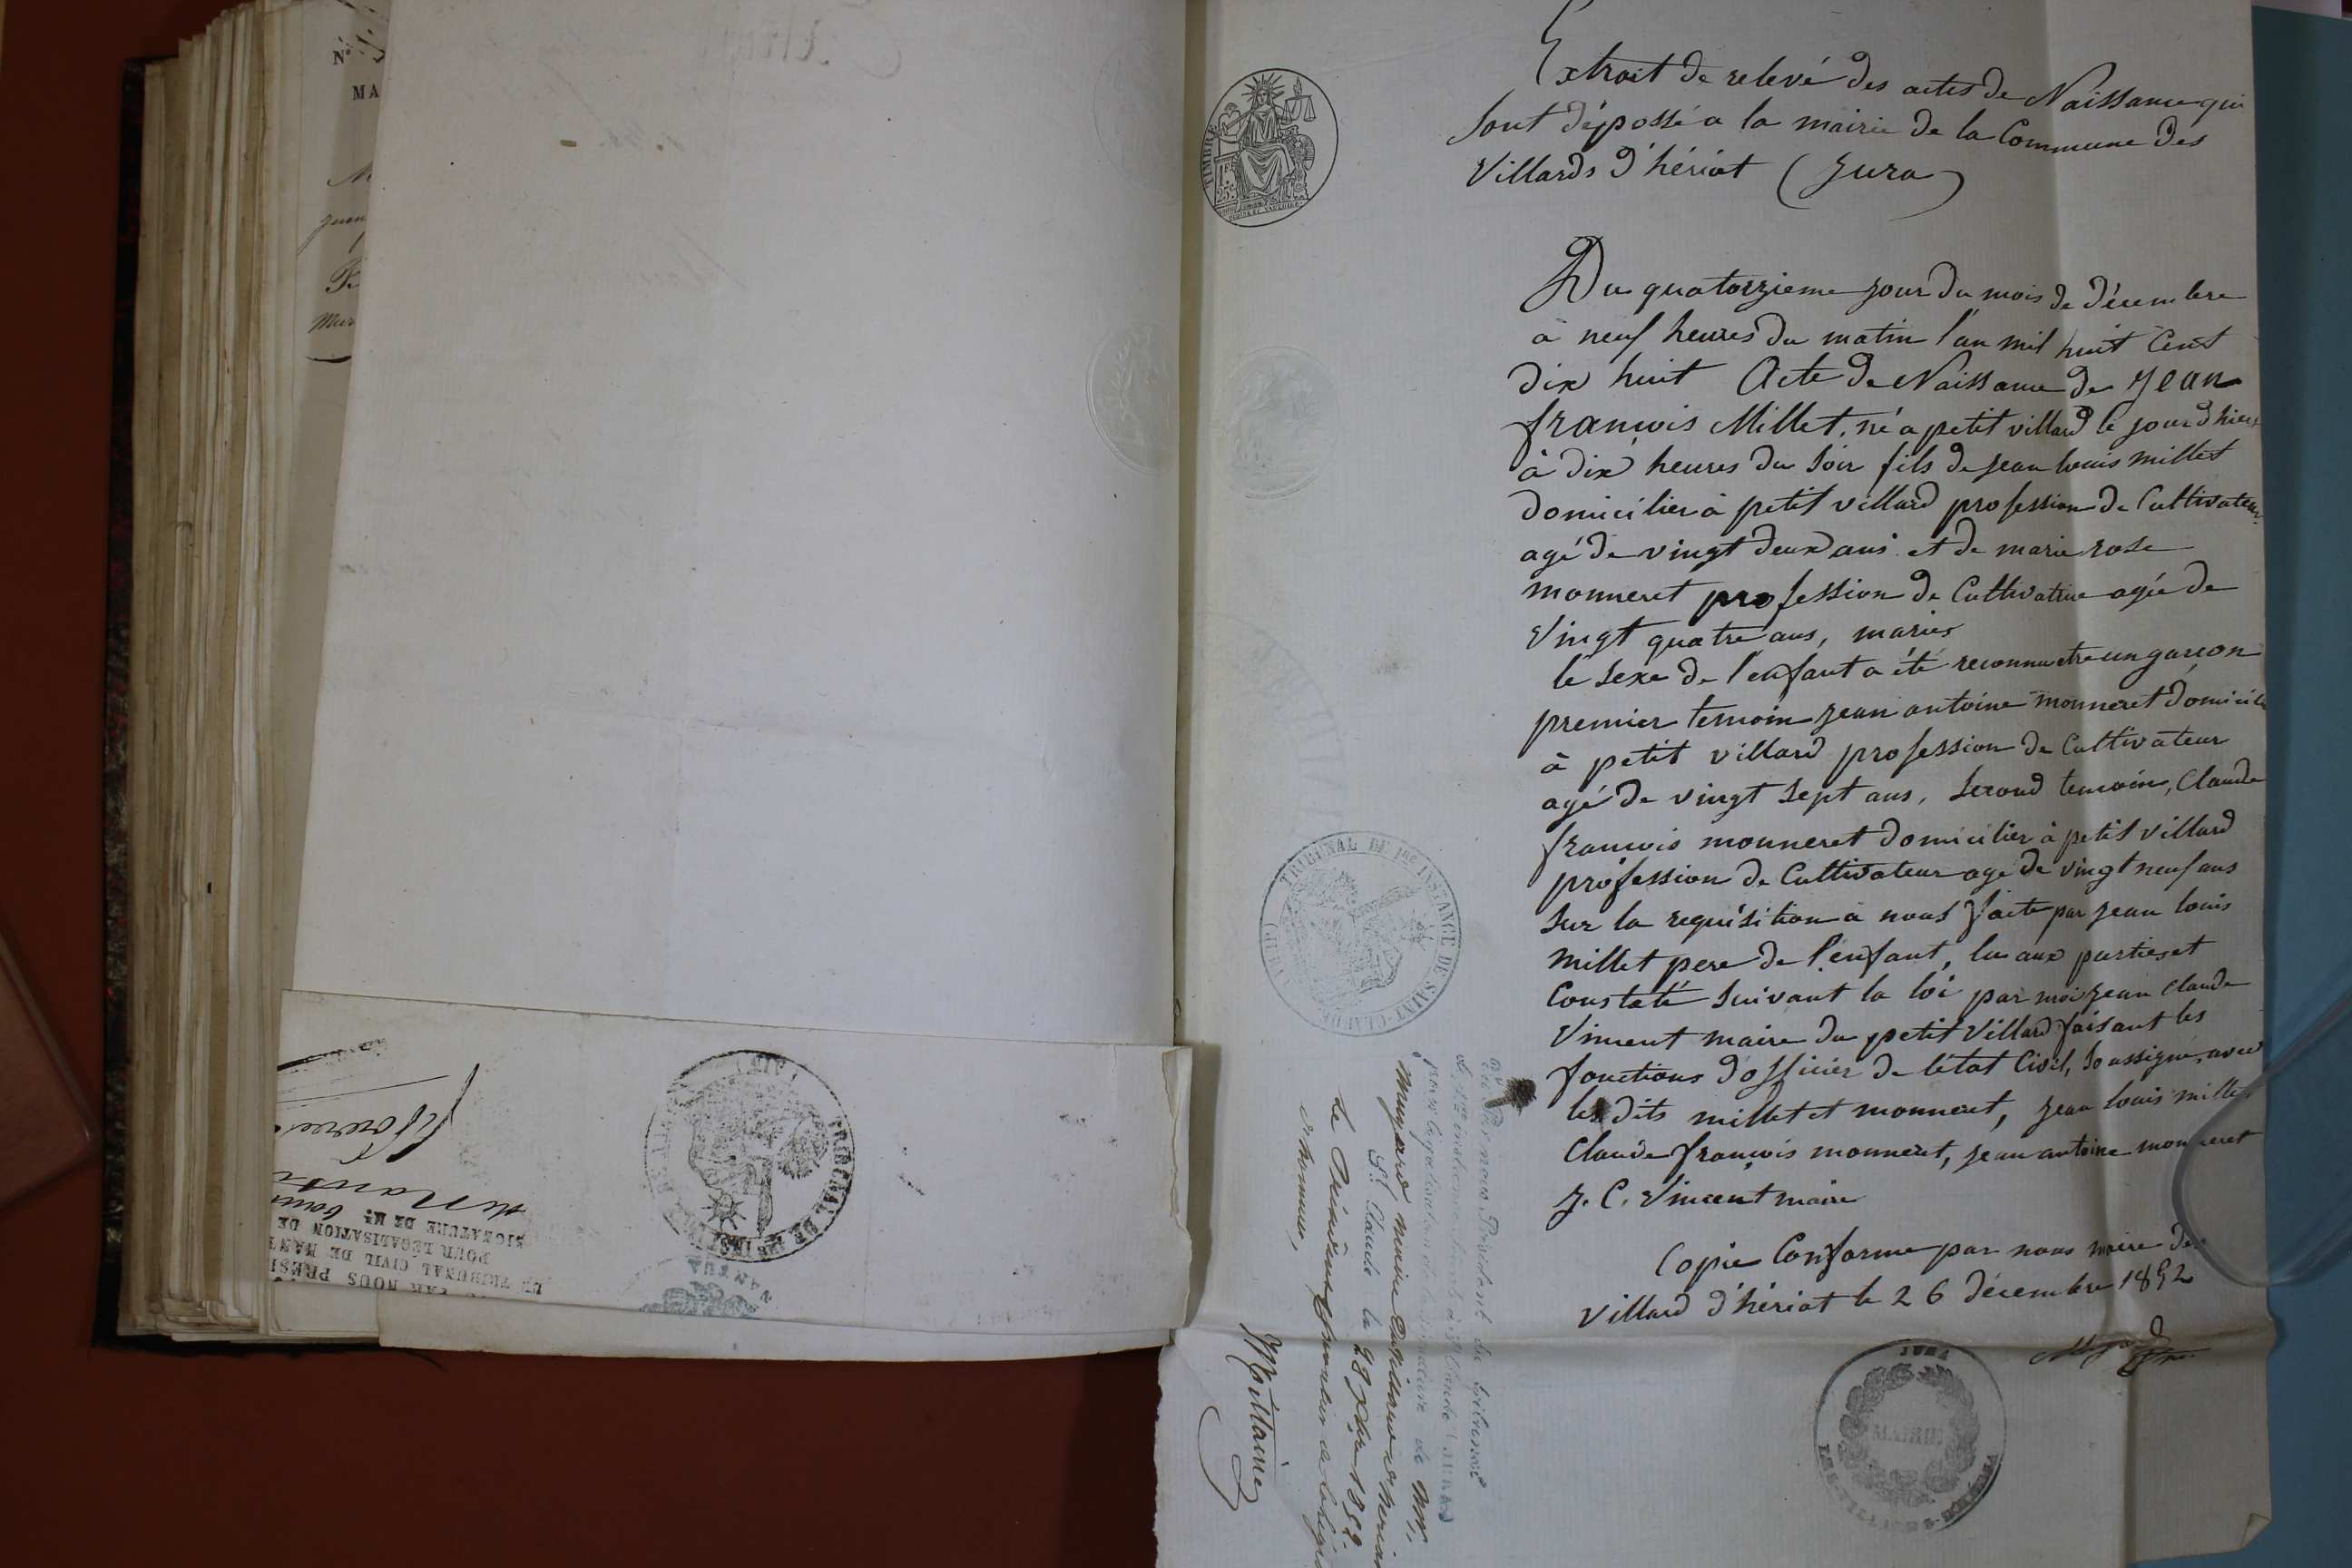 N°
MA
Extrait de relevé des actes de Naissance qui
sont dépossé a la mairie de la Commune des
Villards d'hériat (Jura)
Du quatorzieme jour du mois de décembre
à neuf heures du matin l'an mil huit Cent
dix huit Acte de Naissance de Jean
françois Millet, né a petit villard le jour d'hier
à dix heures du soir fils de jean louis millet
domicilier à petit villard profession de Cultivateur
agé de vingt deux ans et de marie rose
monneret profession de Cultivatrice agée de
Vingt quatre ans, mariés
le sexe de l'enfant a été reconnu etre un garçon
premier temoin jean antoine monneret domicilié
à petit villard profession de Cultivateur
agé de vingt sept ans, second temoin, Claude
françois monneret domicilier à petit villard
profession de Cultivateur agé de vingt neuf ans
sur la requisition a nous faite par jean louis
millet pere de l'enfant, lu aux parties et
Constaté suivant la loi par moi jean Claude
Vincent maire du petit Villard faisant les
fonctions d'officier de l'état Civil, soussigné, avec
les dits millet et monneret, jean louis millet
Claude françois monneret, jean antoine monneret
J. C. Vincent maire
Copie Conforme par nous maire des
Villard d'hériat le 26 décembre 1852
JURA
MAIRIE
LES-VILLARDS-D'HÉRIA
TIMBRE
1F.
25c.
TRIBUNAL DE 1re INSTANCE DE SAINT-CLAUDE
(JURA)
Vu par nous Président du tribunal
de 1re instance séant à St Claude (JURA)
pour légalisation de la signature de Mr.
Muyard maire du Villard d'heriat
St Claude le 28 Xbre 1852.
Le Président
TRIBUNAL DE 1re INSTANCE
(AIN)
NANTUA
VU PAR NOUS PRÉSI
DU TRIBUNAL CIVIL DE NANT
POUR LÉGALISATION DE
SIGNATURE DE Mr.
de Nantua